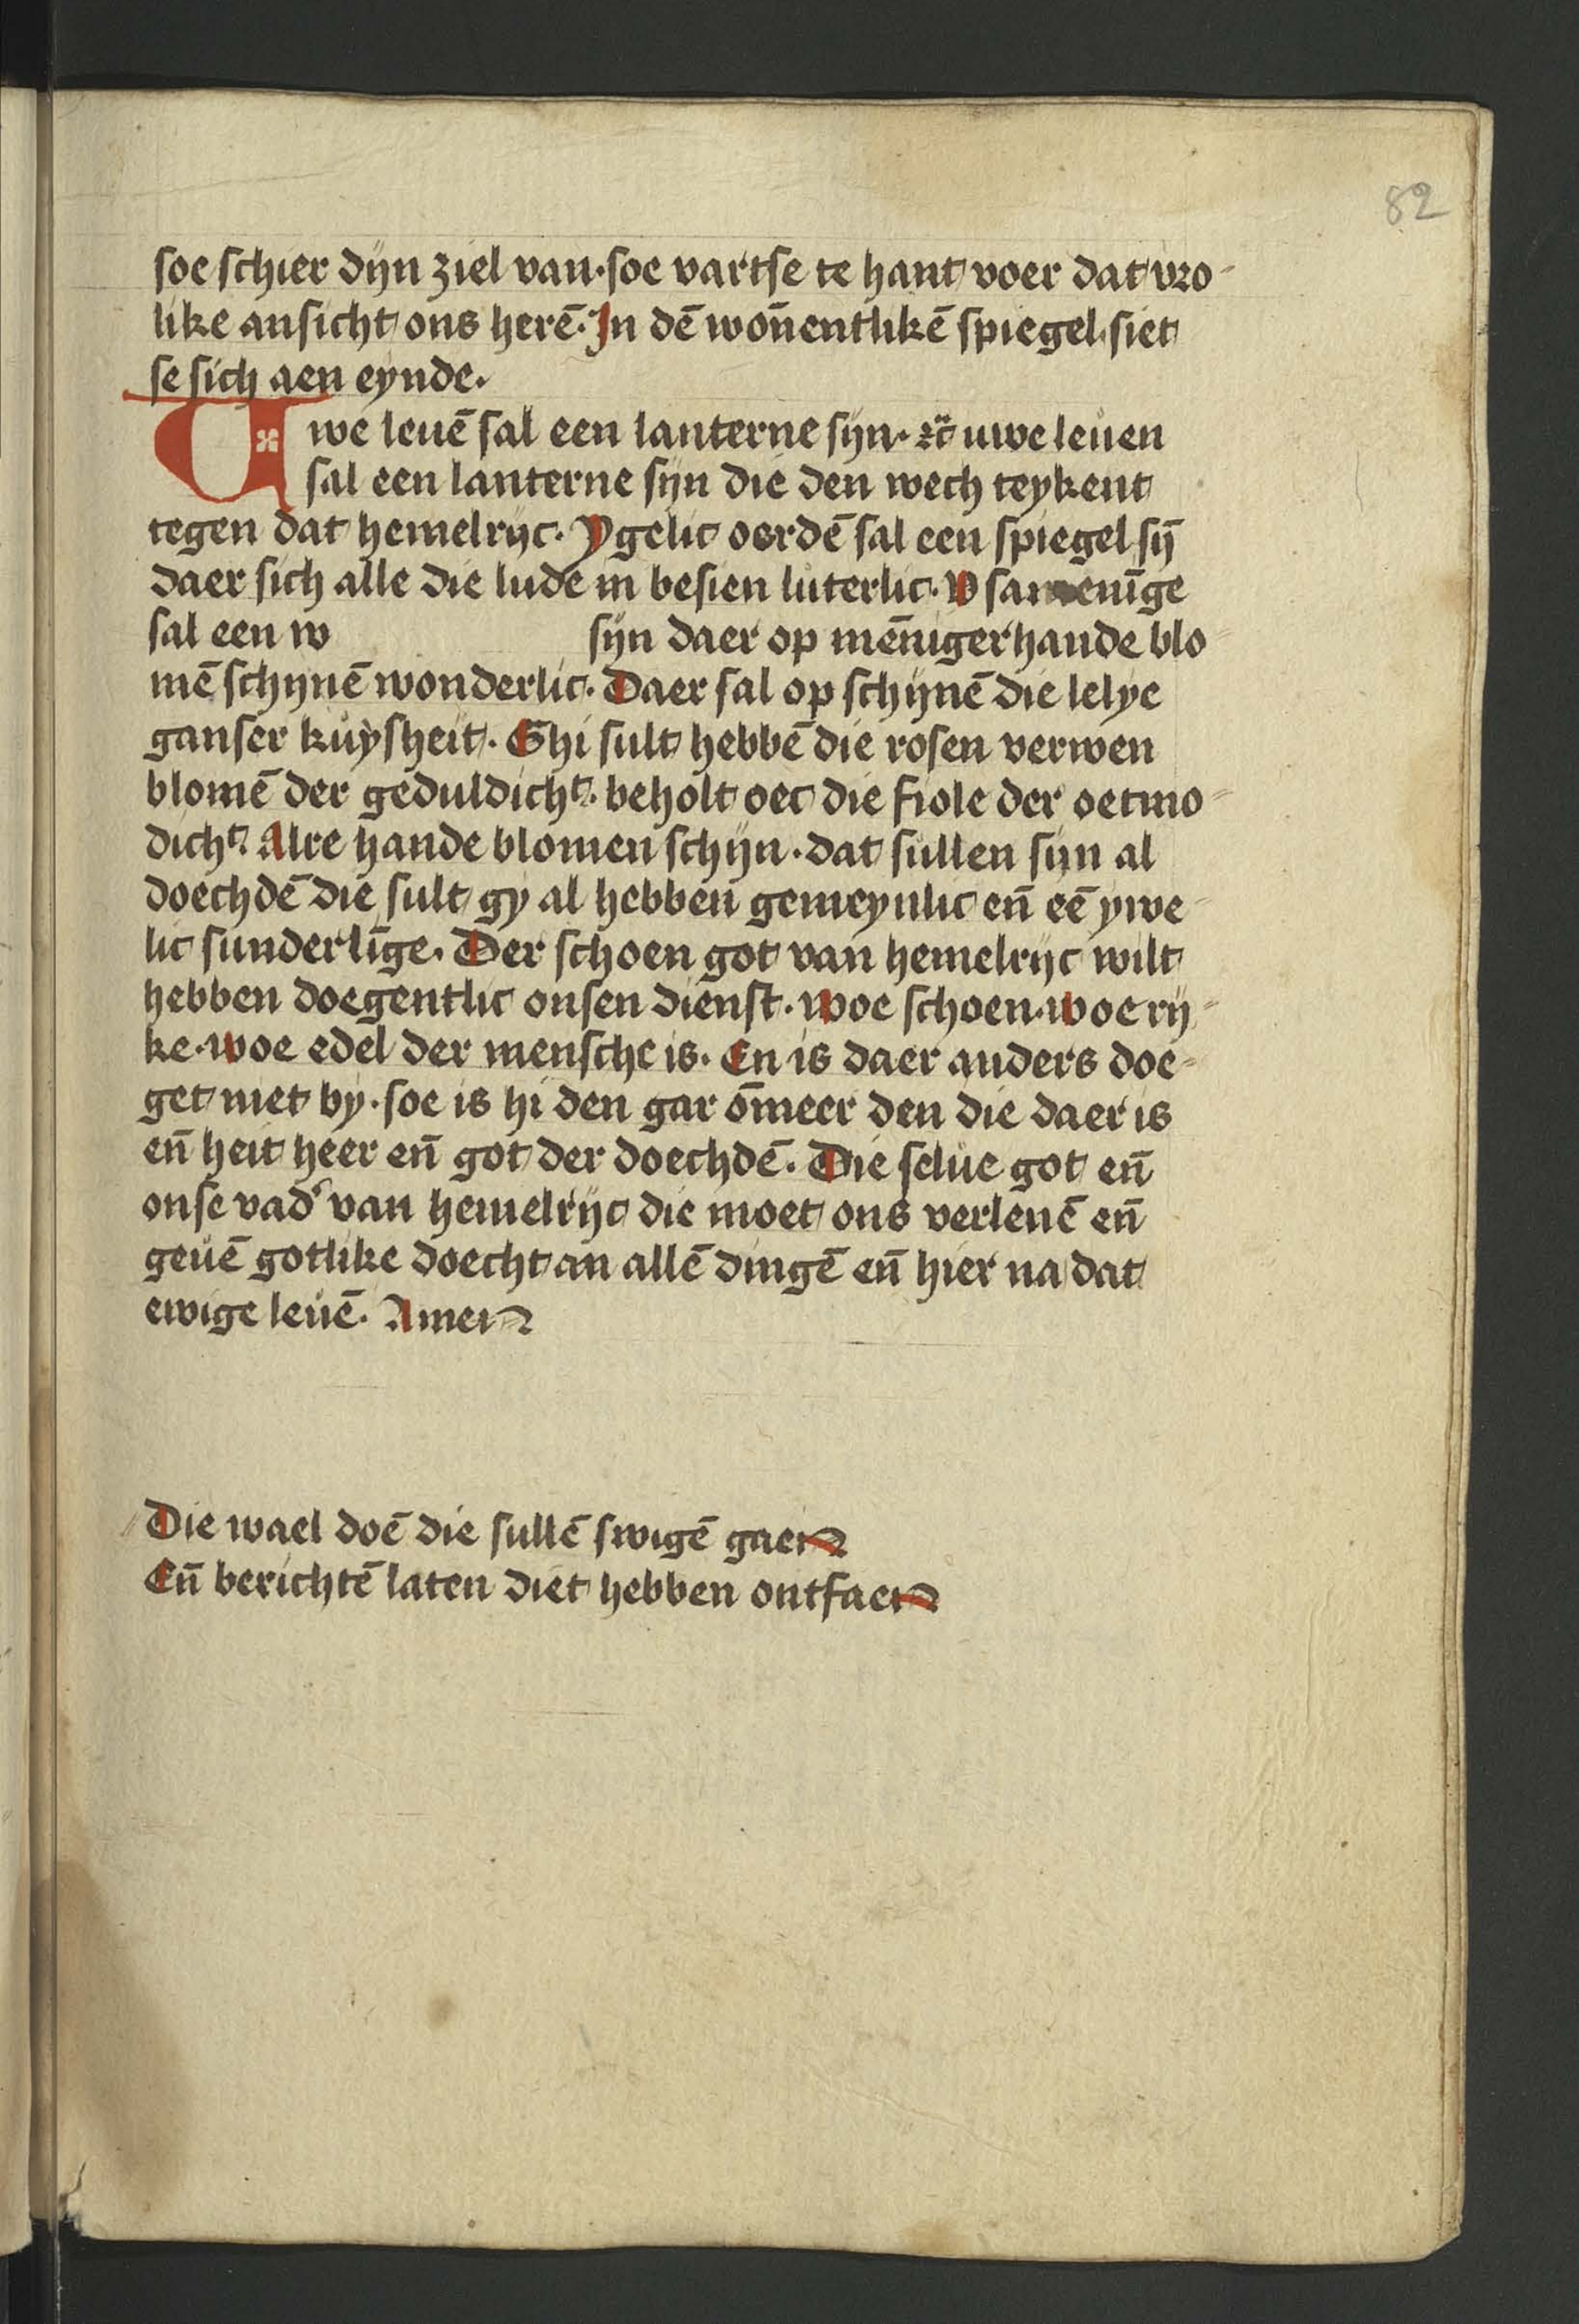 82
soe schier dijn ziel van·soe vartse te hant voer dat vro-
like ansicht ons herē. In dē won̄entlikē spiegel siet
se sich aen eynde.
Uwe leuē sal een lanterne sijn· uwe leuen
sal een lanterne sijn die den wech teykent
tegen dat hemelrijc. Ygelic oerdē sal een spiegel sij̄
daer sich alle die lude in besien luterlic. V samenīge
sal een w sijn daer op mēnigerhande blo-
mē schijnē wonderlic. Daer sal op schijnē die lelye
ganser kuysheit. Ghi sult hebbē die rosen verwen
blomē der geduldicht. beholt oec die fiole der oetmo-
dicht. Alre hande blomen schijn·dat sullen sijn al
doechdē die sult gy al hebben gemeynlic en̄ eē ywe-
lic sunderlīge. Der schoen got van hemelrijc wilt
hebben doegentlic onsen dienst. woe schoen·woe rij-
ke·woe edel der mensche is. En is daer anders doe-
get niet by·soe is hi den gar ōmeer den die daer is
en̄ heit heer en̄ got der doechdē. Die selue got en̄
onse vad' van hemelrijc die moet ons verleuē en̄
geuē gotlike doecht an allē dingē en̄ hier na dat
ewige leuē. Amen
Die wael doē die sullē swigē gaen
En̄ berichtē laten diet hebben ontfaen